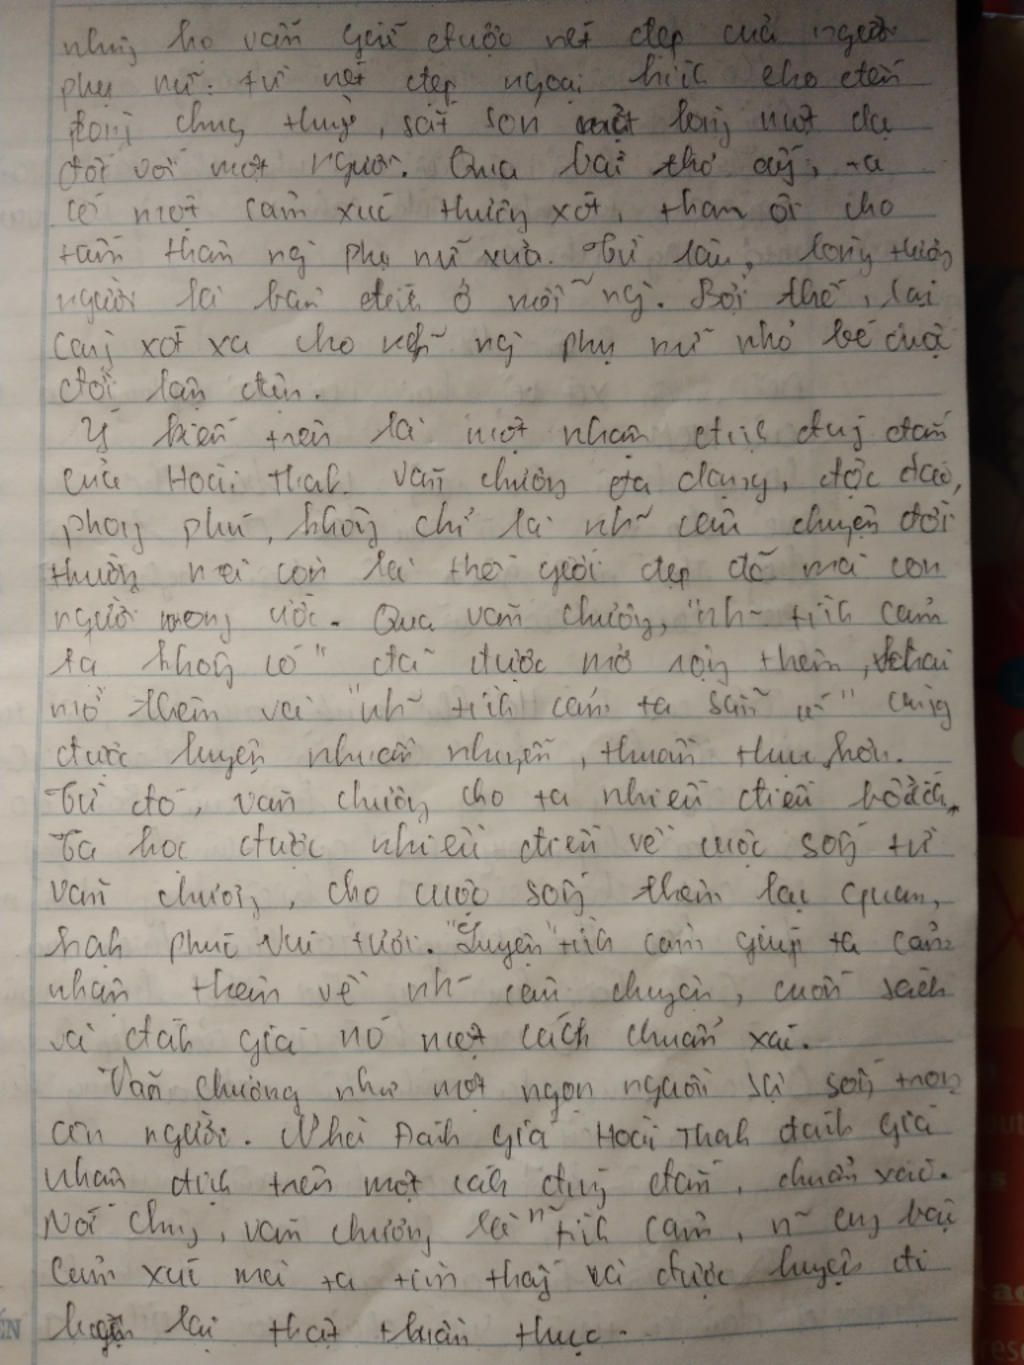 nhưng họ vẫn giữ được nét đẹp của người
phụ nữ. từ nét đẹp ngoại hình cho đến
lòng chung thuỷ, sắt son một lòng một dạ
đối với một người. Qua bài thơ ấy, ta
có một cảm xúc thương xót, than ôi cho
tấm thân ng phụ nữ xưa. Từ lâu, lòng thương
người là bản tính ở mỗi ng. Bởi thế, lại
càng xót xa cho ng phụ nữ nhỏ bé cuộc
đời lận đận.
Ý kiến trên là một nhận định đúng đắn
của Hoài Thanh. Văn chương đa dạng, độc đáo,
phong phú, không chỉ là nh~ câu chuyện đời
thường mà còn là thế giới đẹp đẽ mà con
người mong ước. Qua văn chương, "nh~ tình cảm
ta không có" đã được mở rộng thêm, khai
mở thêm và "nh~ tình cảm ta sẵn có" cũng
được luyện nhuần nhuyễn, thuần thục hơn.
Từ đó, văn chương cho ta nhiều điều bổ ích.
Ta học được nhiều điều về cuộc sống từ
văn chương, cho cuộc sống thêm lạc quan,
hạnh phúc vui tươi. "Luyện" tình cảm giúp ta cảm
nhận thêm về nh~ câu chuyện, cuốn sách
và đánh giá nó một cách chuẩn xác.
Văn chương như một ngọn nguồn sự sống trong
con người. Nhà Đánh giá Hoài Thanh đánh giá
nhận định trên một cách đúng đắn, chuẩn xác.
Nói chung, văn chương là tình cảm, n~ cung bậc
cảm xúc mà ta tìm thấy và được luyện đi
luyện lại thật thuần thục.